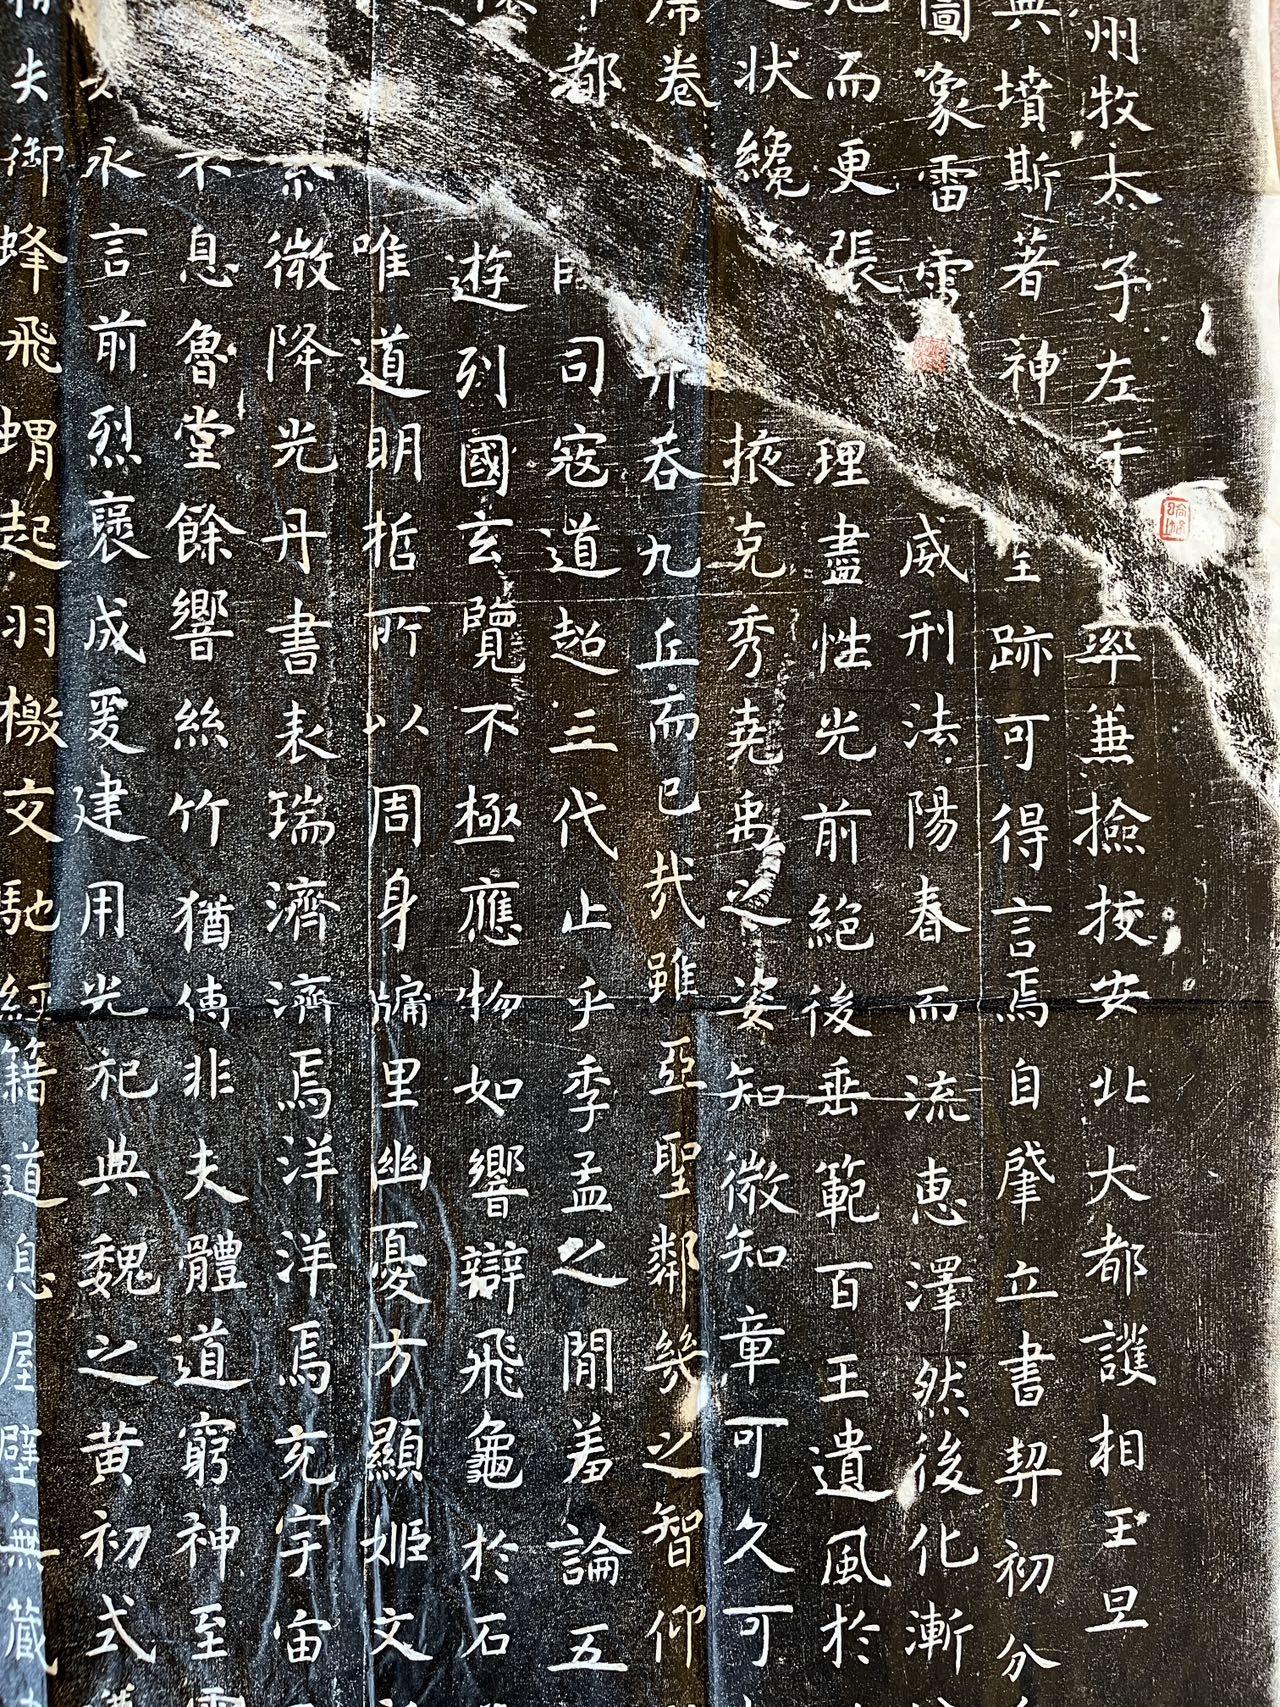 州牧太子左千率兼撿挍安北大都護相王旦
典墳斯著神聖跡可得言焉自肇立書契初分
圖象雷電威刑法陽春而流恵澤然後化漸
而更張理盡性光前絕後垂範百王遺風於
之状纔掖克秀堯禹之姿知微知章可久可
席卷并吞九丘而已㢤雖亞聖鄰幾之智仰
都司寇道超三代止乎季孟之閒羞論五
遊列國玄覽不極應物如響辯飛龜於石
唯道眀哲所以周身牖里幽憂方顯姬文
微降光丹書表瑞濟濟焉洋洋焉充宇宙
不息魯堂餘響絲竹猶傳非夫體道窮神至
永言前烈襃成爰建用光祀典魏之黄初式
失御蜂飛蝟起羽檄交馳經籍道息屋壁無藏